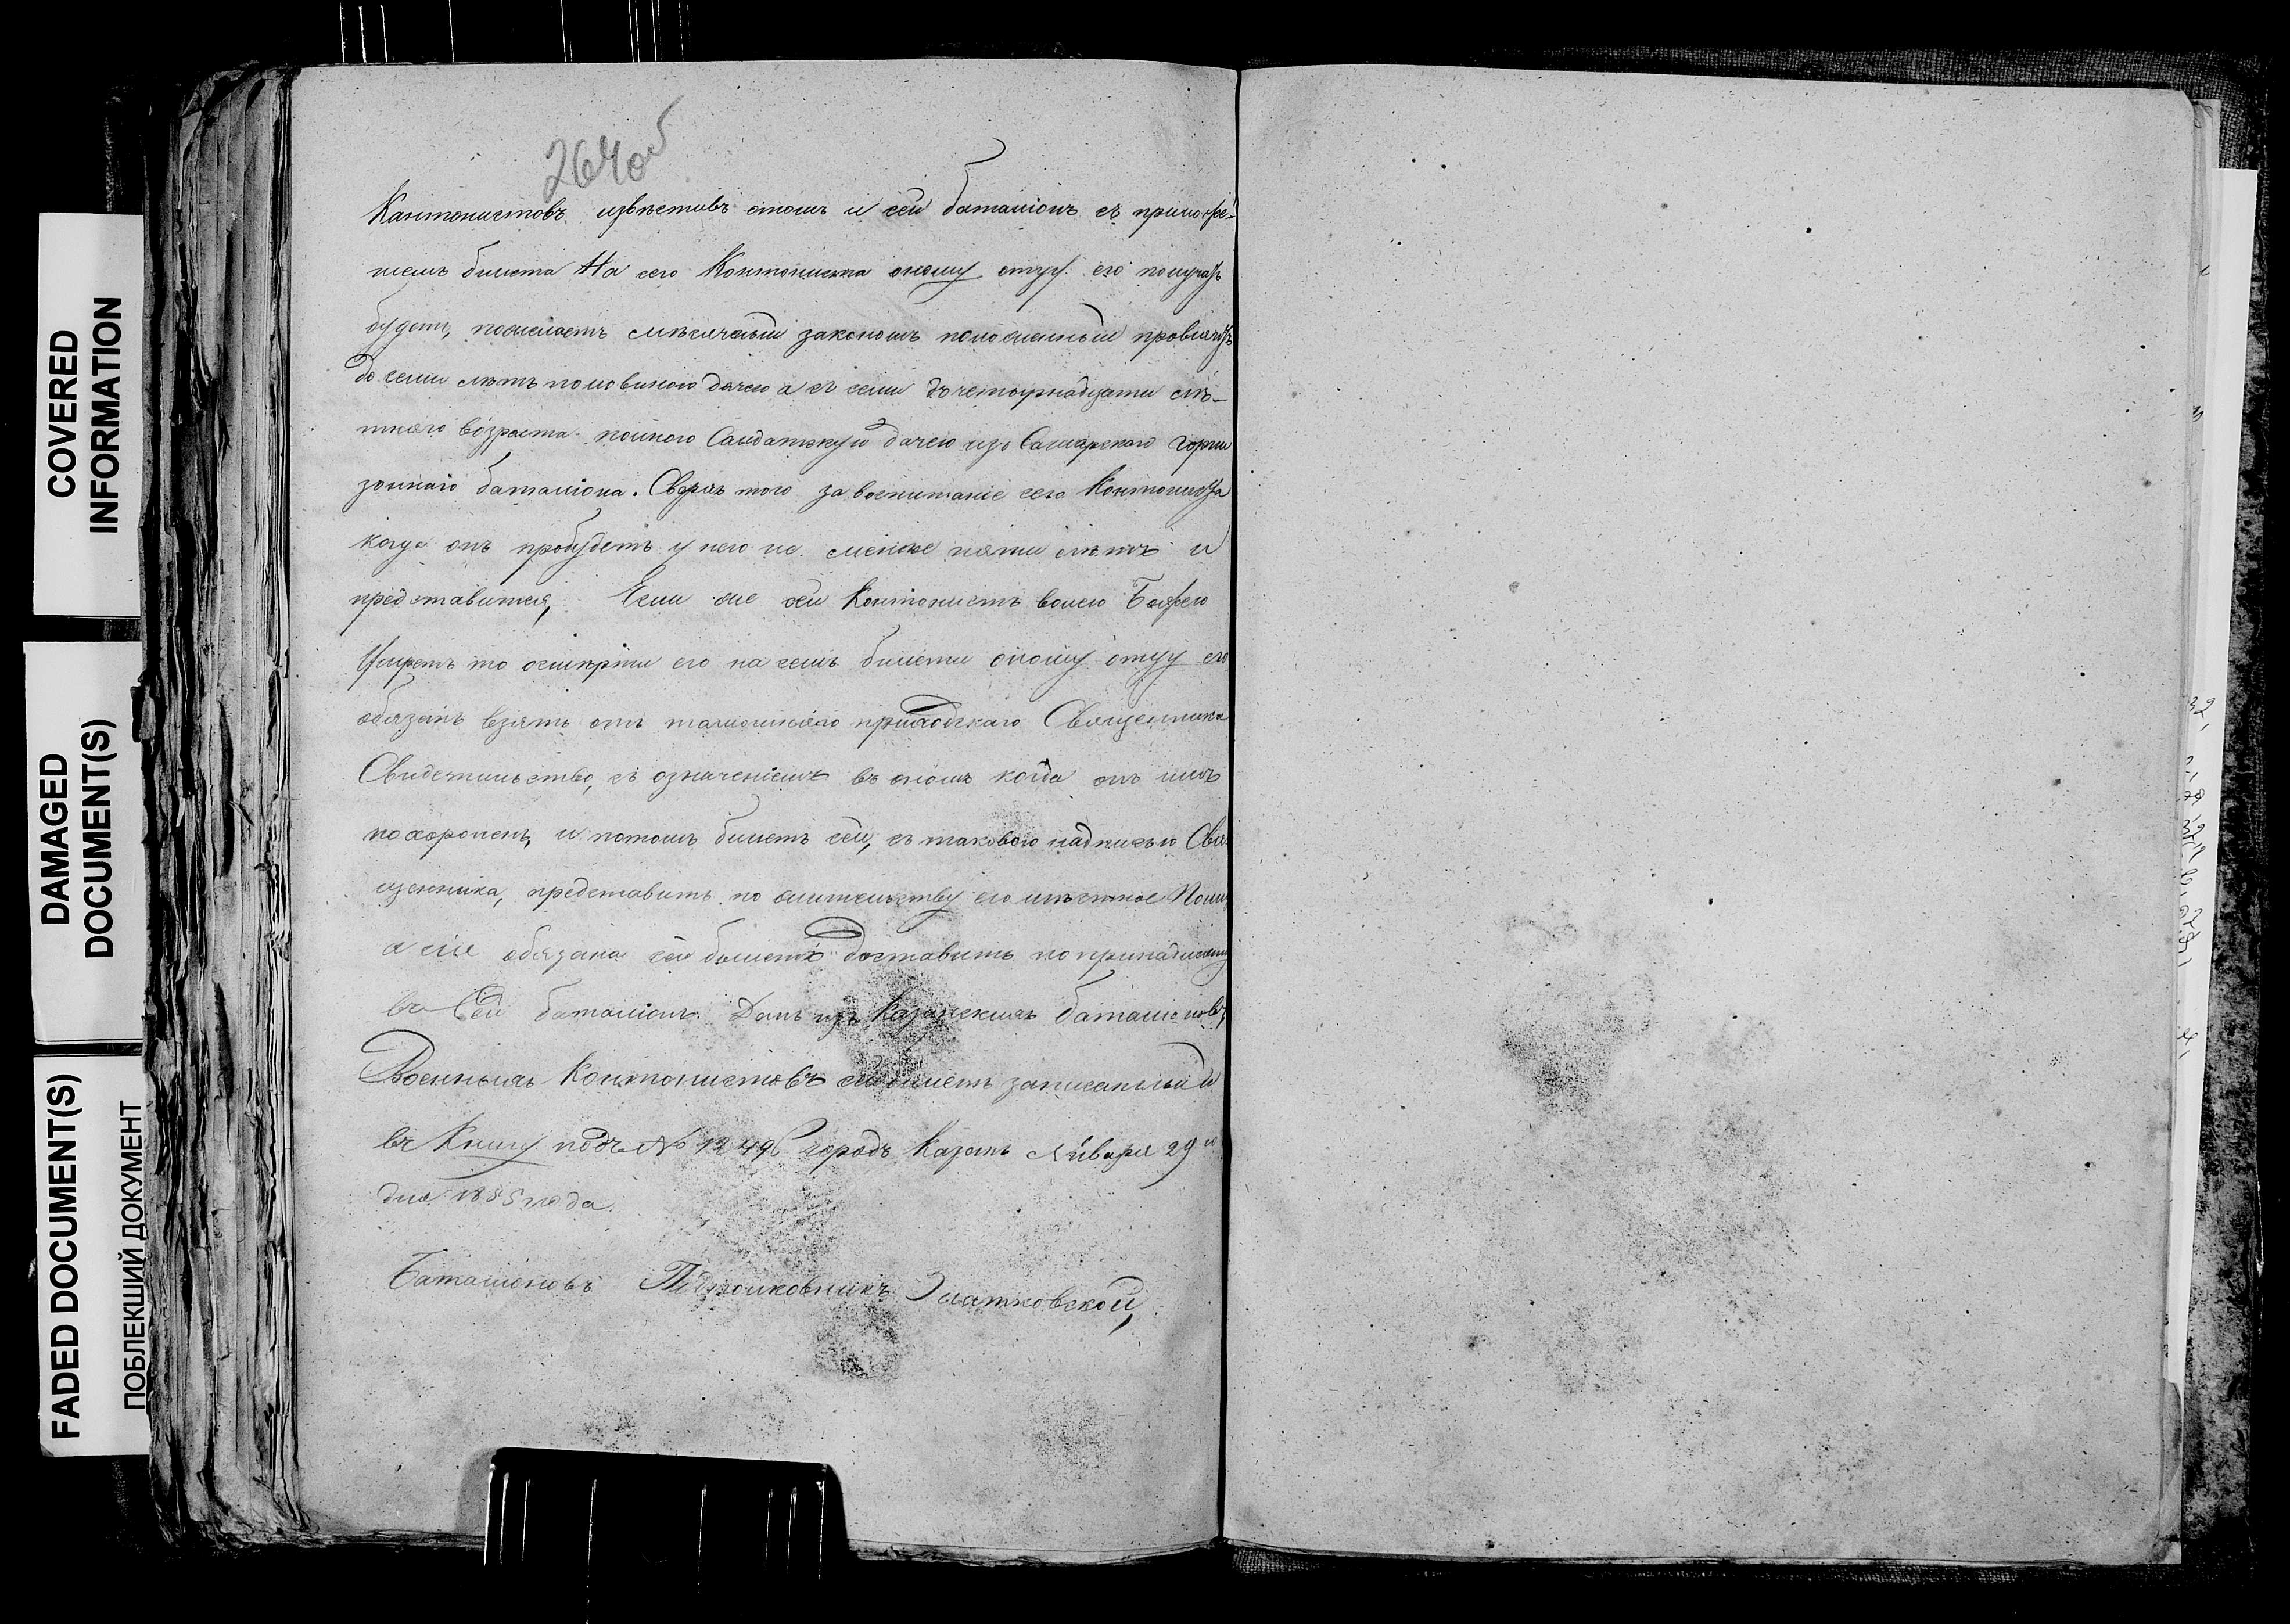 COVERED
INFORMATION
DAMAGED
DOCUMENT(S)
FADED DOCUMENT(S)
ПОБЛЕКШИЙ ДОКУМЕНТ
264об
Кантонистовъ извѣстивъ отомъ и сей баталіонъ съ приложе-
ніемъ билета На сего Контониста оному отцу его получать
будетъ, помесячно законом положенный провіантъ
до семи лѣтъ половиною дачею а съ семи до четырнадцати лѣ-
тняго возраста полною Салдатскую дачею изъ Самарскаго Горни
зоннаго баталіона. Сверхъ того за воспитаніе сего Контониста
когда онъ пробудетъ у него не менѣе пяти лѣтъ и
представится, Если же сей Контонистъ волею Божею
Умретъ то осмерти его на семъ билети оному отцу его
обязанъ взять отъ тамошняго приходскаго Священника
Свидетельство, съ означеніемъ въ ономъ когда онъ имъ
похороненъ, и потомъ билетъ сей, съ таковою надписью Свя
щенника, представить по жительству его мѣстное
а сіе обязана сей билетъ доставить по принадлежн
въ Сей баталіонъ. Данъ изъ Казанскихъ баталіоновъ
Военныхъ Контонистовъ сей билетъ записанный
въ Книгу подъ № 12496 городъ Казань Января 29
дня 1855 года.
Баталіоновъ Подполковникъ Златковской,